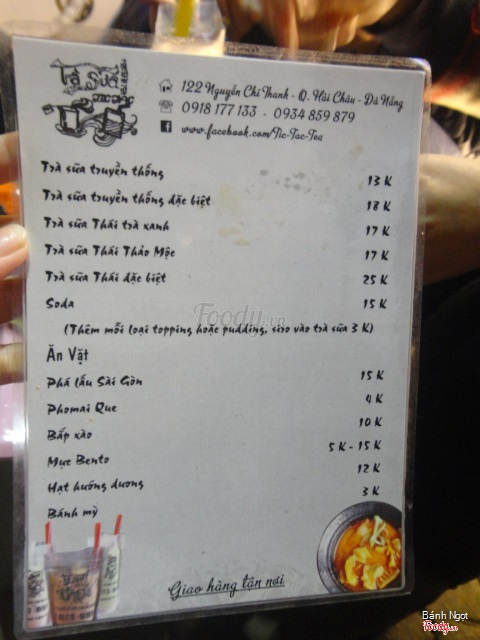 Trà Sữa
122 Nguyễn Chí Thanh - Q. Hải Châu - Đà Nẵng
0918 177 133 - 0934 859 879
www.facebook.com/Tic-Tac-Tea
Trà sữa truyền thống 13 K
Trà sữa truyền thống đặc biệt 18 K
Trà sữa Thái trà xanh 17 K
Trà sữa Thái Thảo Mộc 17 K
Trà sữa Thái đặc biệt 25 K
Soda 15 K
Foody.vn
(Thêm mỗi loại topping hoặc pudding, siro vào trà sữa 3 K)
Ăn Vặt
Phá lấu Sài Gòn 15 K
Phomai Que 4 K
Bắp xào 10 K
Mực Bento 5 K - 15 K
Hạt hướng dương 12 K
Bánh mỳ 3 K
Giao hàng tận nơi
Bánh Ngọt
Foody.vn